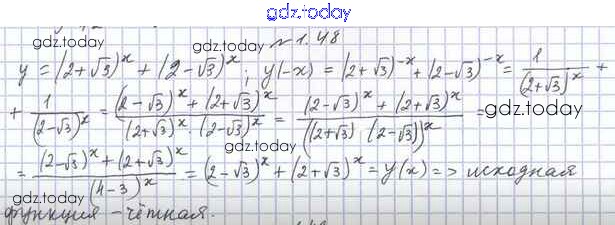 gdz.today
№1.48
gdz.today gdz.today gdz.today
y = (2+√3)^x + (2-√3)^x; y(-x) = (2+√3)^{-x} + (2-√3)^{-x} = 1/(2+√3)^x +
+ 1/(2-√3)^x = ((2-√3)^x + (2+√3)^x)/((2+√3)^x · (2-√3)^x) = ((2-√3)^x + (2+√3)^x)/((2+√3)(2-√3))^x =
gdz.today gdz.today
= ((2-√3)^x + (2+√3)^x)/(4-3)^x = (2-√3)^x + (2+√3)^x = y(x) => исходная
gdz.today gdz.today
функция - чётная.